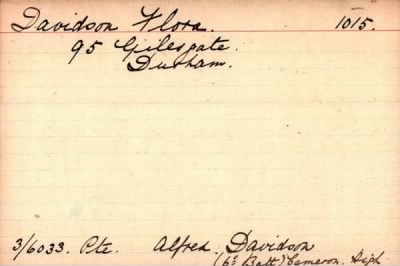 Davidson Flora. 1015.
95 Gilesgate.
Durham.
3/6033. Pte. Alfred. Davidson
(6th Batt) Cameron. High